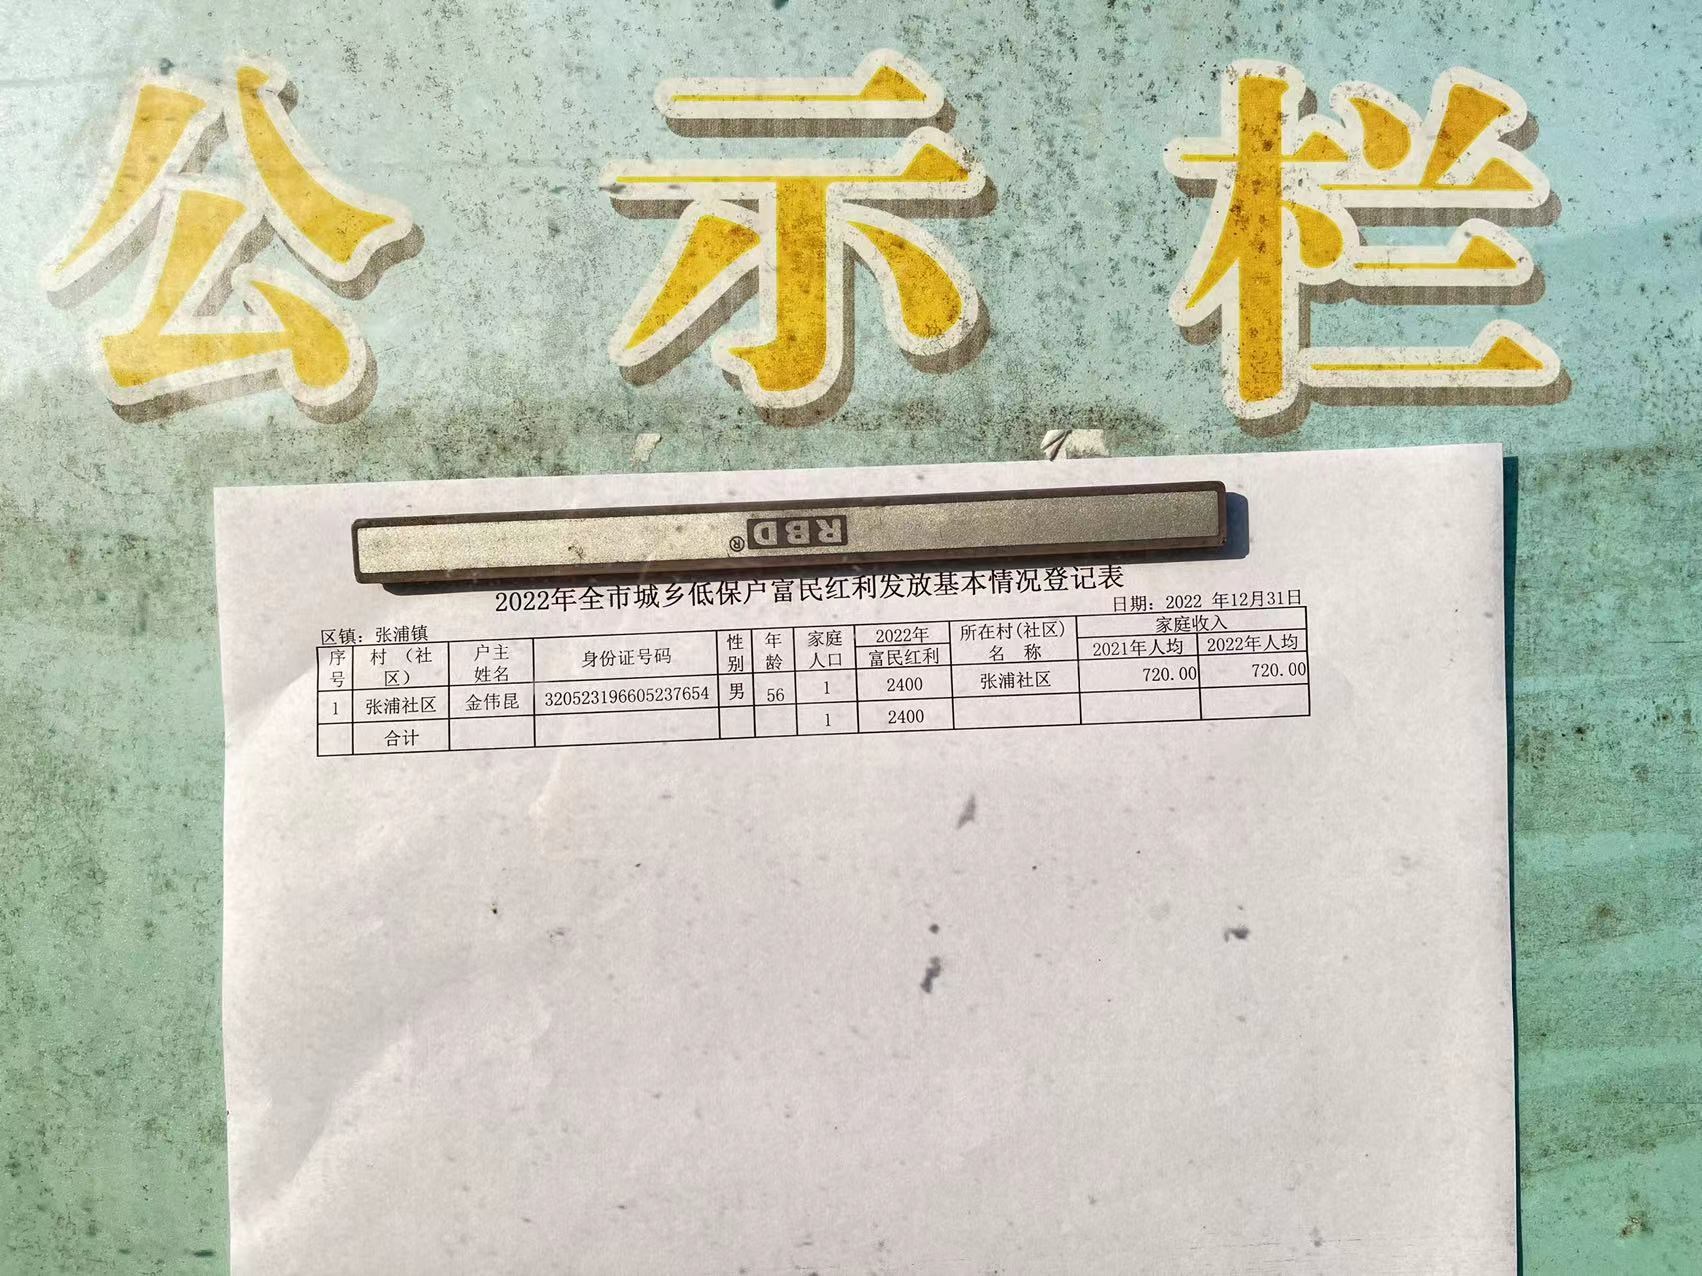 公示栏
RBD®
2022年全市城乡低保户富民红利发放基本情况登记表
区镇：张浦镇 日期：2022 年12月31日
序号 村（社区） 户主姓名 身份证号码 性别 年龄 家庭人口 2022年富民红利 所在村(社区)名 称 家庭收入
2021年人均 2022年人均
1 张浦社区 金伟昆 320523196605237654 男 56 1 2400 张浦社区 720.00 720.00
合计 1 2400